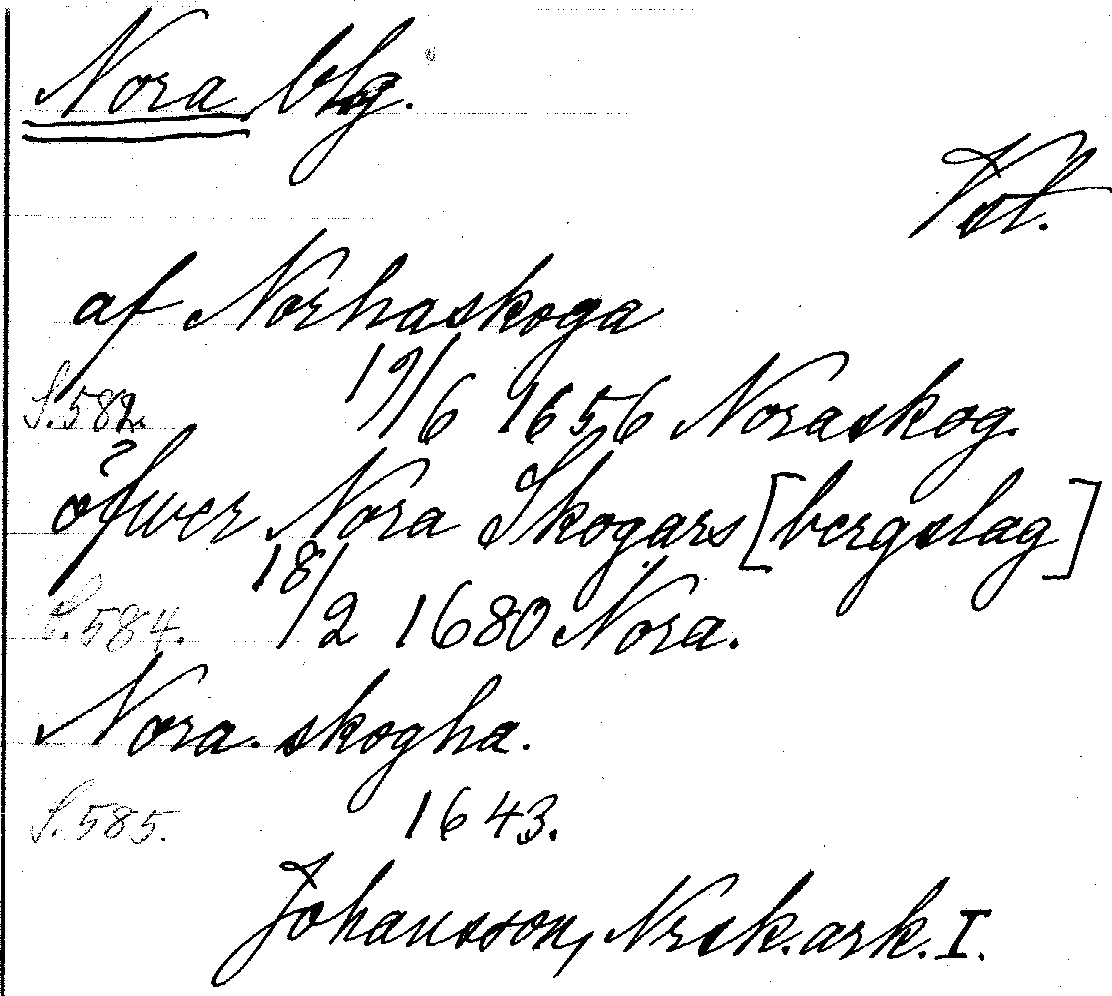 Nora blg.
Vst.
af Norhaskoga
S. 582. 19/6 1656 Noraskog.
öfwer Nora Skogars [bergslag]
S. 584. 18/2 1680 Nora.
Nora skogha.
S. 585. 1643.
Johansson, Nrsk. ark. I.